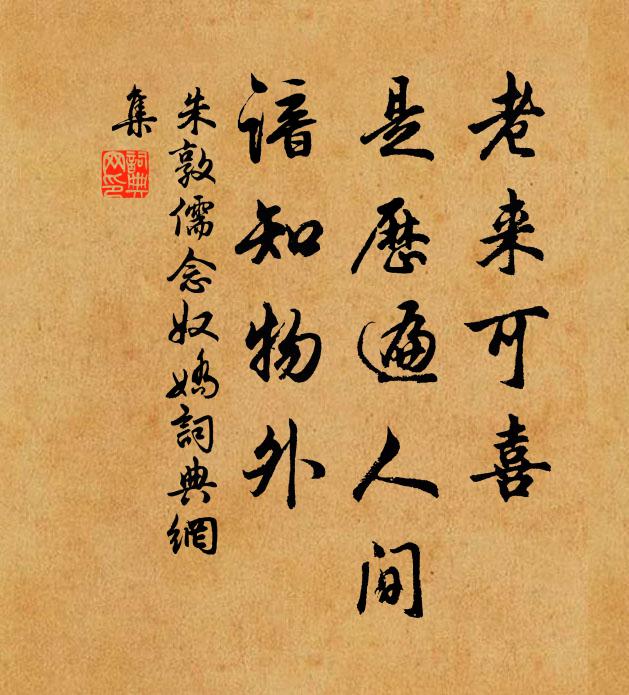 老来可喜
是歷遍人间
谙知物外
朱敦儒念奴嬌詞典網
集
詞典
网印